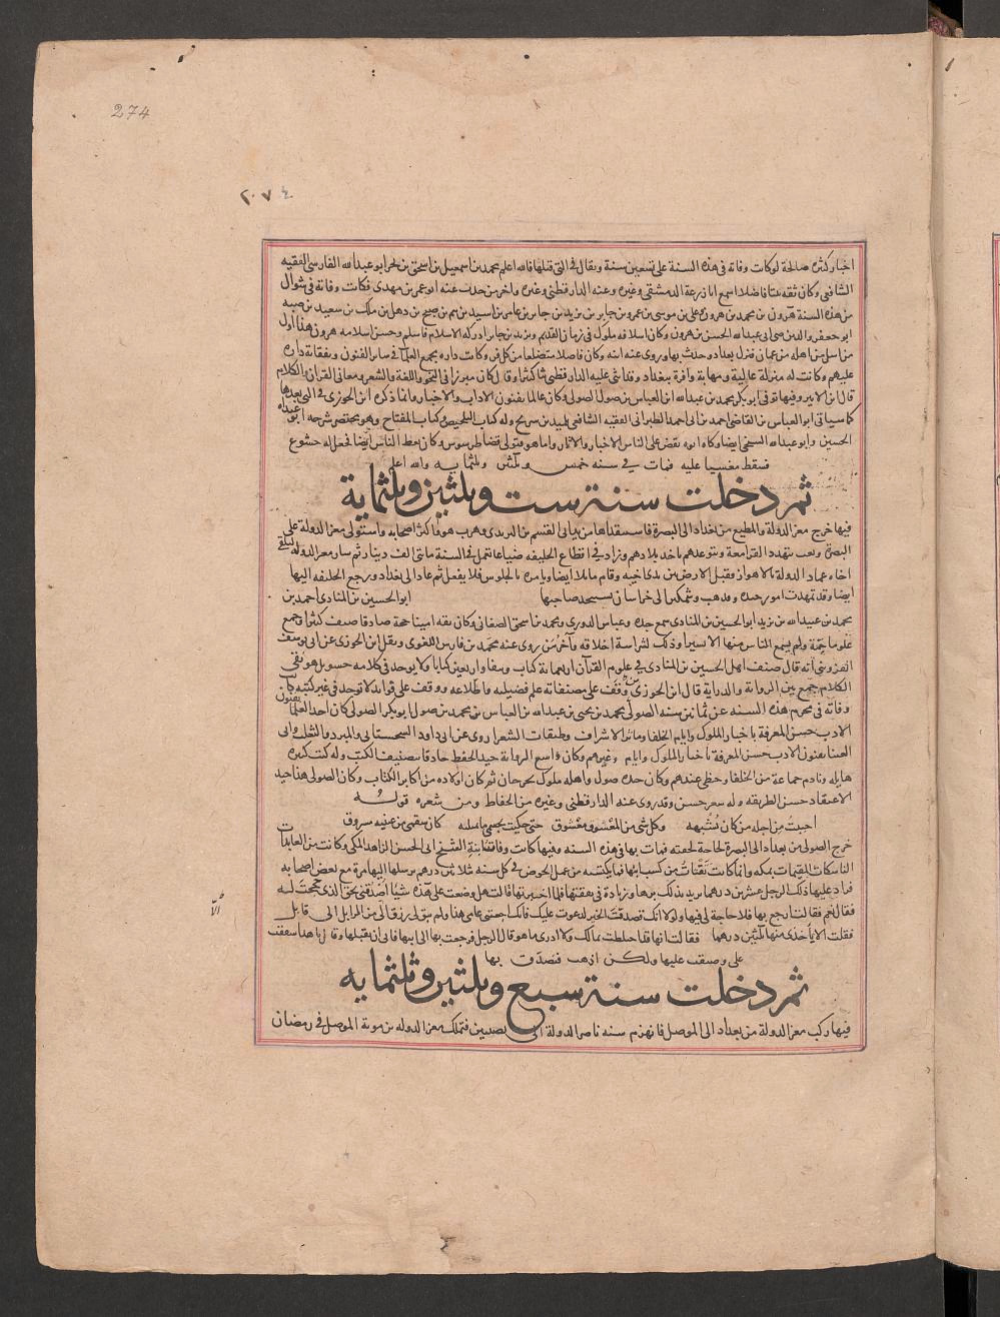 274
٢٠٧٤
اخبار كثيرة صالحة لو كانت وفاته في هذه السنة على تسعين سنة ويقال في التي قبلها فالله اعلم محمد بن اسمعيل بن اسحق بن بحر ابو عبد الله الفارسي الفقيه
الشافعي وكان ثقة ثبتا فاضلا سمع ابا زرعة الدمشقي وغيره وعنه الدارقطني وغيره واخر من حدث عنه ابو عمر بن مهدي فكانت وفاته في شوال
من هذه السنة هرون بن محمد بن هرون بن علي بن موسى بن عمرو بن جابر بن يزيد بن جابر بن عامر بن اسيد بن تيم بن صبح بن ذهل بن ملك بن سعيد بن ضبه
ابو جعفر والد القاضي ابي عبد الله الحسن بن هرون وكان اسلافه ملوك في زمان القديم ويزيد بن جابر ادركه الاسلام فاسلم وحسن اسلامه هرون هذا اول
من اهله من عمان فنزل بغداد وحدث بها وروى عنه ابنه وكان فاضلا متضلعا من كل فن وكانت داره يجمع العلما في ساير الفنون ونفقاته داره
عليهم وكانت له منزلة عالية ومهابة وافرة ببغداد وقد اثنى عليه الدارقطني ثنا كثيرا وقال كان مبرزا في النحو واللغة والشعر ومعاني القران والكلام
قال ابن الاثير وفيها توفي ابو بكر محمد بن عبد الله ابن العباس بن صول الصولي وكان عالما بفنون الاداب والاخبار وانما ذكره ابن الجوزي في التي بعدها
كما سياتي ابو العباس بن القاضي احمد بن ابي احمد الطبراني الفقيه الشافعي تلميذ بن سريج وله كتاب التلخيص وكتاب المفتاح وهو مختصر شرحه ابو عبد الله
الحسين وابو عبد الله السنجي ايضا وكان ابوه يقص على الناس الاخبار والاثار واما هو فتولى قضا طرسوس وكان يعظ الناس ايضا فحصل له خشوع
فسقط مغسيا عليه فمات في سنه خمس وثلثين وثلثمايه والله اعلم
ثم دخلت سنة ست وثلثين وثلثماية
فيها خرج معز الدولة والمطيع من بغداد الى البصرة فاستنقذاها من يد ابي القسم بن البريدي وهرب هو واكثر اصحابه واستولى معز الدولة على
البصرة وبعث يتهدد القرامطة ويتوعدهم باخذ بلادهم وزاد في اقطاع الخليفه ضياعا تعمل في السنة مايتي الف دينار ثم سار معز الدوله لتلقي
اخاه عماد الدولة بالاهواز وقبل الارض بين يدي اخيه وقام ماثلا ايضا ويامره بالجلوس فلا يفعل ثم عاد الى بغداد ورجع الخليفه اليها
ايضا وقد تمهدت امور جيده وفيها ابو الحسين بن المنادي احمد بن
محمد بن عبيد الله بن يزيد ابو الحسين بن المنادي سمع جده وعباس الدوري ومحمد بن اسحق الصغاني وكان ثقة امينا حجة صادقا صنف كثيرا وجمع
علوما جمة ولم يسمع الناس منها الا يسيرا وذلك لشراسة اخلاقه وآخر من روى عنه محمد بن فارس اللغوي ونقل ابن الجوزي عن ابي يوسف
القزويني انه قال صنف ابو الحسين بن المنادي في علوم القرآن اربعماية كتاب ونيفا واربعين كتابا ولا يوجد في كلامه حشو بل هو نقي
الكلام جمع بين الرواية والدراية قال ابن الجوزي من وقف على مصنفاته علم فضيلته واطلاعه ووقف على فوايد لا توجد في غير كتبه كانت
وفاته في محرم هذه السنه عن ثمانين سنه الصولي محمد بن يحيى بن عبد الله بن العباس بن محمد بن صول ابو بكر الصولي كان احد العلما بفنون
الادب حسن المعرفة باخبار الملوك وايام الخلفا وماثر الاشراف وطبقات الشعرا روى عن ابي داود السجستاني والمبرد وثعلب وابي
العينا بفنون الادب حسن المعرفة باخبار الملوك وايام وغيرهم وكان واسع الرواية جيد الحفظ حاذقا بصنيف الكتب وله كتب كثيرة
هايله ونادم جماعة من الخلفا وحظي عندهم وكان جده صول واهله ملوك بجرجان ثم كان اولاده من اكابر الكتاب وكان الصولي هذا جيد
الاعتقاد حسن الطريقه وله شعر حسن وقد روى عنه الدارقطني وغيره من الحفاظ ومن شعره قوله
احببت من اجله من كان يشبهه وكل شي من المعشوق معشوق حتى حكيت بجسمي ما بمقلته كان سقمي من عينيه مسروق
خرج الصولي من بغداد الى البصرة لحاجة لحقته فمات بها في هذه السنه وفيها كانت وفاة ابنة الشيخ ابي الحسن الزاهد المكي وكانت من العابدات
الناسكات المقيمات بمكه وانما كانت تقتات من كسب ابيها فيما يكتسبه من عمل الخوص في كل سنه ثلاثين درهم يرسلها اليها مرة مع بعض اصحابه
فزاد عليها ذلك الرجل عشرين درهما يريد بذلك برها وزيادة في نفقتها فلما اختبرتها قالت هل وضعت على هذه شيئا اصدقني بحق الذي حججت له
فقال نعم فقالت ارجع بها فلا حاجة لي فيها ولولا انك قصدت الخير لدعوت عليك فانك اجعتني عامي هذا ولم يبق لي رزق الا من المزابل الى قابل
فقلت الا تاخذي منها ثلثين درهما فقالت انها قد اختلطت بمالك ولا ادري ما هو قال الرجل فرجعت بها الى ابيها فابى ان يقبلها وقال يا هذا شققت
علي وضيقت عليها ولكن اذهب فتصدق بها
ثم دخلت سنة سبع وثلثين وثلثمايه
فيها ركب معز الدولة من بغداد الى الموصل فانهزم منه ناصر الدولة الى نصيبين فتملك معز الدوله بن بويه الموصل في رمضان